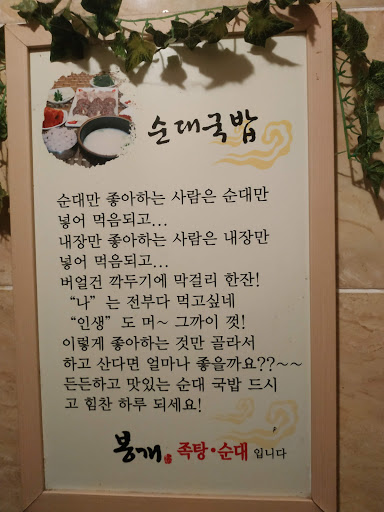 순대국밥
순대만 좋아하는 사람은 순대만
넣어 먹음되고...
내장만 좋아하는 사람은 내장만
넣어 먹음되고...
버얼건 깍두기에 막걸리 한잔!
“나”는 전부다 먹고싶네
“인생”도 머~ 그까이 껏!
이렇게 좋아하는 것만 골라서
하고 산다면 얼마나 좋을까요??~~
든든하고 맛있는 순대 국밥 드시
고 힘찬 하루 되세요!
봉개 족탕·순대 입니다